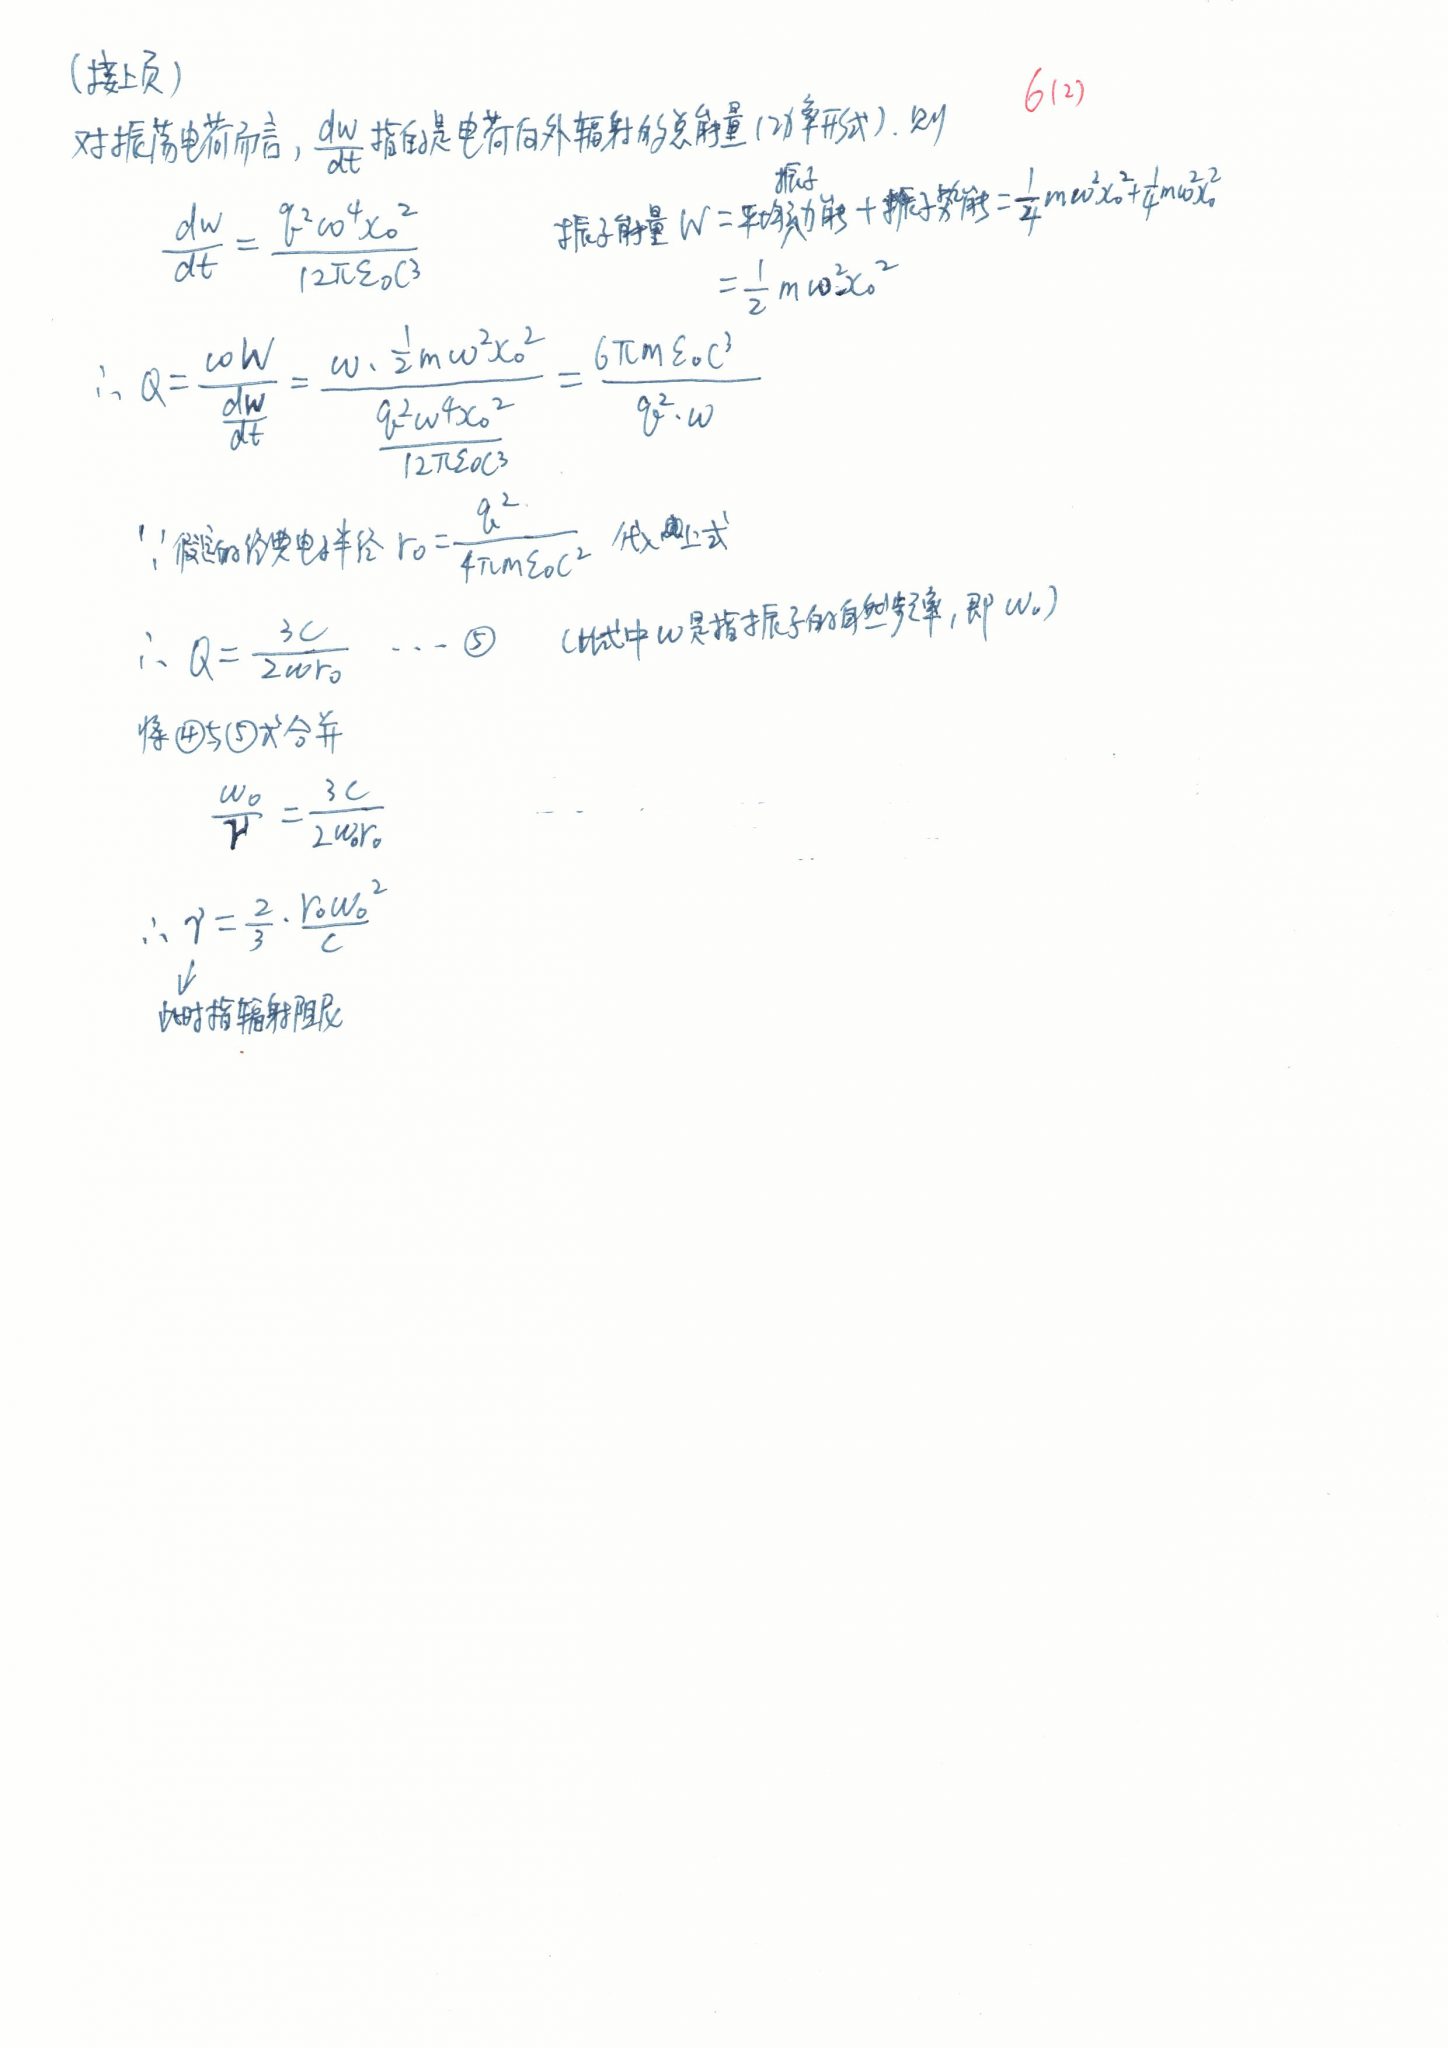 (接上页)
6(2)
对振荡电荷而言, dw/dt 指的是电荷向外辐射的总能量(功率形式).则
dw/dt = q²ω⁴x₀²/12πε₀c³
振子
振子能量 W = 平均动能 + 振子势能 = 1/4 mω²x₀² + 1/4 mω²x₀²
= 1/2 mω²x₀²
∴ Q = ωW/(dw/dt) = ω·1/2 mω²x₀²/(q²ω⁴x₀²/12πε₀c³) = 6πmε₀c³/q²·ω
∵ 假定的经典电子半径 r₀ = q²/4πmε₀c² 代入上式
∴ Q = 3c/2ωr₀ ... ⑤ (此式中ω是指振子的自然频率,即ω₀)
将④与⑤式合并
ω₀/γ = 3c/2ω₀r₀
∴ γ = 2/3 · r₀ω₀²/c
↓
此时指辐射阻尼